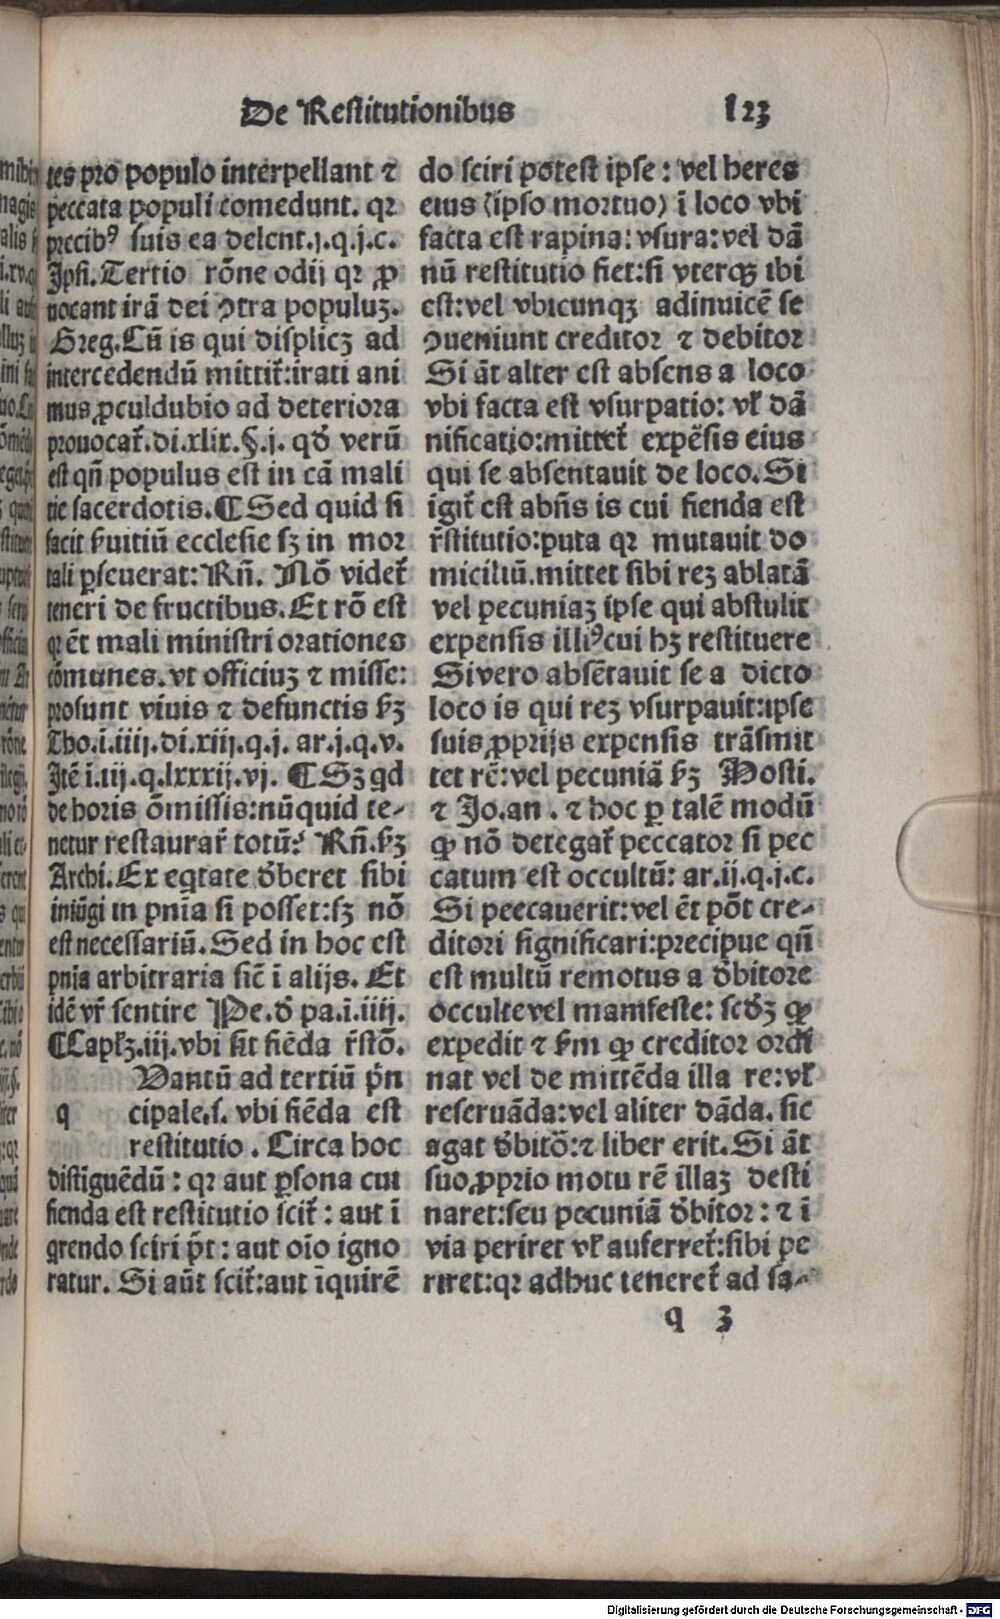 De Restitutionibus 123
tes pro populo interpellant ⁊
peccata populi comedunt. qꝛ
precibꝰ suis ea delent.j.q.j.c.
Ipsi. Tertio rōne odij qꝛ ꝓ
uocant irā dei ꝯtra populuꝫ.
Greg. Cū is qui displicꝫ ad
intercedendū mittit̉:irati ani
mus ꝓculdubio ad deteriora
prouocat̉.di.xlix.§.j. qđ verū
est qn̄ populus est in cā mali
tie sacerdotis.¶ Sed quid si
facit ẜuitiū ecclesie sꝫ in mor
tali ꝑseuerat: Rn̄. Nō videt̉
teneri de fructibus. Et rō est
qꝛ ēt mali ministri orationes
cōmunes. vt officiuꝫ ⁊ misse:
prosunt viuis ⁊ defunctis ẜꝫ
Tho.ī.iiij.di.xiij.q.j. ar.j.q.v.
Itē ī.iij.q.lxxxij.vj. ¶ Sꝫ qd
de horis ōmissis:nūquid te-
netur restaurar̉ totū: Rn̄.ẜꝫ
Archi. Ex eqtate đberet sibi
iniūgi in pn̄ia si posset:sꝫ nō
est necessariū. Sed in hoc est
pn̄ia arbitraria sic̄ ī alijs. Et
idē vr̄ sentire Pe. đ pa.ī.iiij.
¶ Capl̓ꝫ.iij.vbi sit fiēda r̄stō.
Uantū ad tertiū pn̄
q cipale.s. vbi fiēda est
restitutio. Circa hoc
distīguēdū: qꝛ aut ꝑsona cui
fienda est restitutio scit̉: aut ī
qrendo sciri pt̄: aut oīo igno
ratur. Si aūt scit̉:aut īquirē
do sciri potest ipse: vel heres
eius (ipso mortuo) ī loco vbi
facta est rapina: vsura: vel dā
nū restitutio fiet:si vterqꝫ ibi
est:vel vbicunqꝫ adinuicē se
ꝯueniunt creditor ⁊ debitor
Si āt alter est absens a loco
vbi facta est vsurpatio: vl̓ dā
nificatio:mittet̉ expēsis eius
qui se absentauit de loco. Si
igit̉ est abn̄s is cui fienda est
r̄stitutio:puta qꝛ mutauit do
miciliū.mittet sibi reꝫ ablatā
vel pecuniaꝫ ipse qui abstulit
expensis illiꝰ cui hꝫ restituere
Si vero absētauit se a dicto
loco is qui reꝫ vsurpauit:ipse
suis ꝓprijs expensis trāsmit
tet rē:vel pecuniā ẜꝫ Hosti.
⁊ Jo.an. ⁊ hoc ꝑ talē modū
ꝙ nō detegat̉ peccator si pec
catum est occultū: ar.ij.q.j.c.
Si peccauerit:vel ēt pōt cre-
ditori significari:precipue qn̄
est multū remotus a đbitore
occulte vel manifeste: scđꝫ ꝙ
expedit ⁊ ẜm ꝙ creditor ordī
nat vel de mittēda illa re:vl̓
reseruāda:vel aliter dāda. sic
agat đbitō:⁊ liber erit. Si āt
suo ꝓprio motu rē illaꝫ desti
naret:seu pecuniā đbitor: ⁊ ī
via periret vl̓ auferret̉:sibi pe
riret:qꝛ adhuc teneret̉ ad sa-
q 3
Digitalisierung gefördert durch die Deutsche Forschungsgemeinschaft - DFG